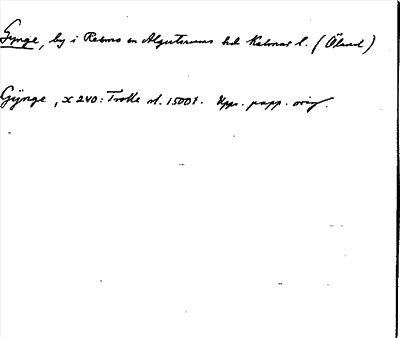 Gynge, by i Resmo sn Algutsrums hd Kalmar l. (Öland)
Gÿnge, x 240: Trolle sl. 1500 t. Upps. papp. orig.